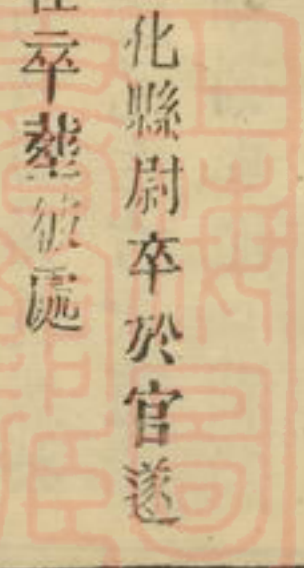 化縣尉卒於官遂
卒塟彼處